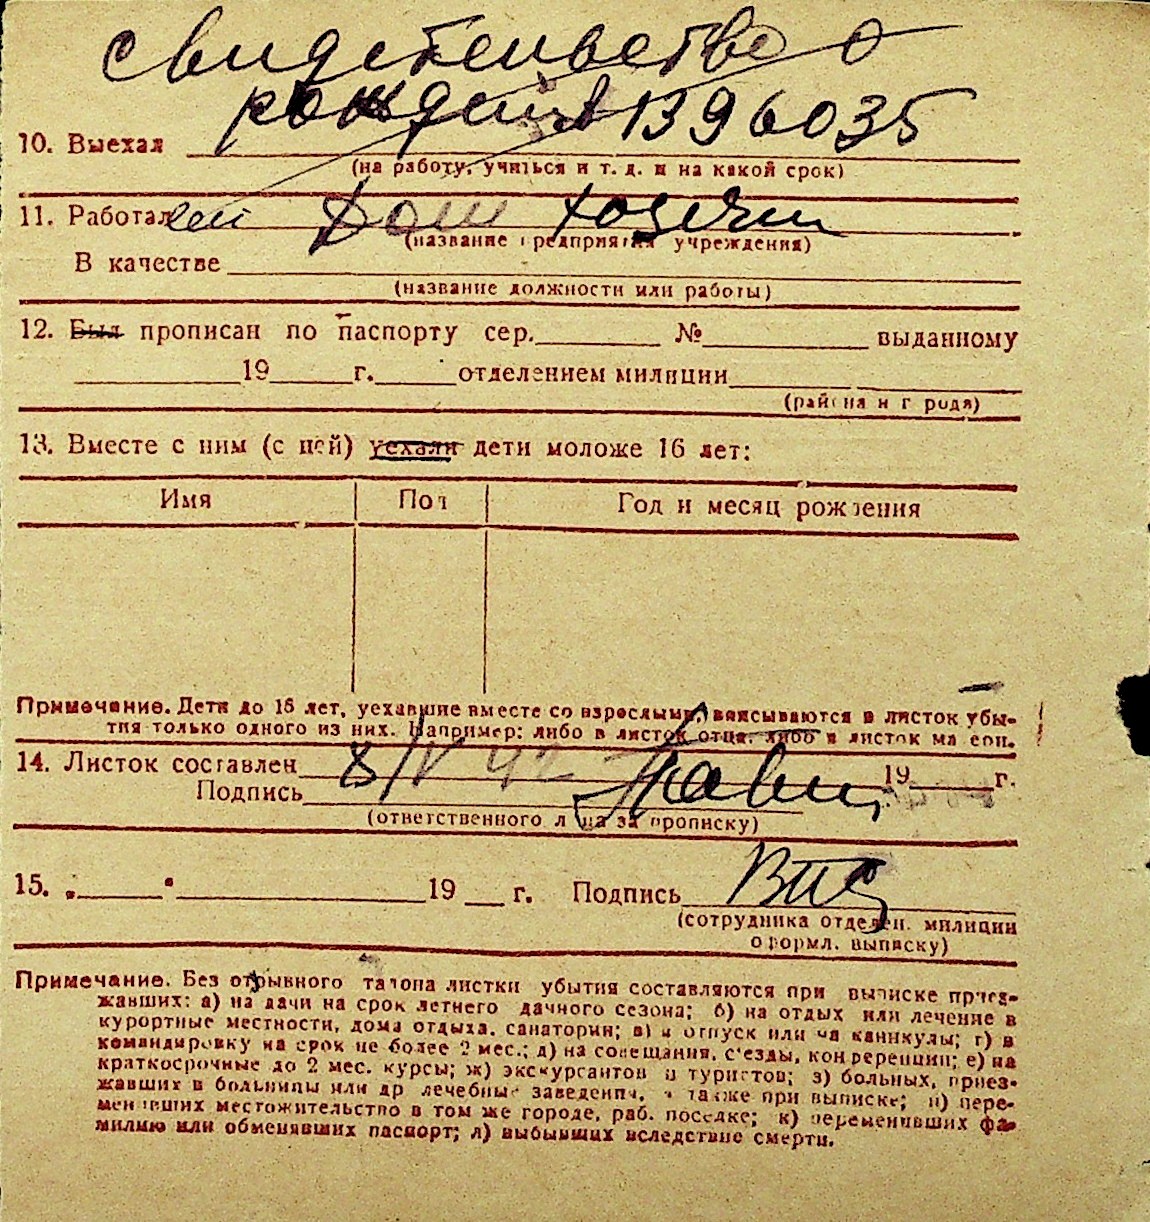 Свидетельство о
рождения 1396035
10. Выехал
(на работу, учиться и т. д. и на какой срок)
11. Работал Дом хозяйки
(название предприятия учреждения)
В качестве
(название должности или работы)
12. Был прописан по паспорту сер. № выданному
19 г. отделением милиции
(района и города)
13. Вместе с ним (с ней) уехали дети моложе 16 лет:
Имя Пол Год и месяц рождения
Примечание. Дети до 16 лет, уехавшие вместе со взрослыми, вписываются в листок убы-
тия только одного из них. Например: либо в листок отца, либо в листок матери.
14. Листок составлен 8/IV 42 19 г.
Подпись
(ответственного лица за прописку)
15. „ " 19 г. Подпись
(сотрудника отделен. милиции
оформл. выписку)
Примечание. Без отрывного талона листки убытия составляются при выписке приез-
жавших: а) на дачи на срок летнего дачного сезона; б) на отдых или лечение в
курортные местности, дома отдыха, санатории; в) в отпуск или на каникулы; г) в
командировку на срок не более 2 мес.; д) на совещания, съезды, конференции; е) на
краткосрочные до 2 мес. курсы; ж) экскурсантов и туристов; з) больных, приез-
жавших в больницы или др лечебные заведения, а также при выписке; и) пере-
менивших местожительство в том же городе, раб. поселке; к) переменивших фа-
милию или обменявших паспорт; л) выбывших вследствие смерти.